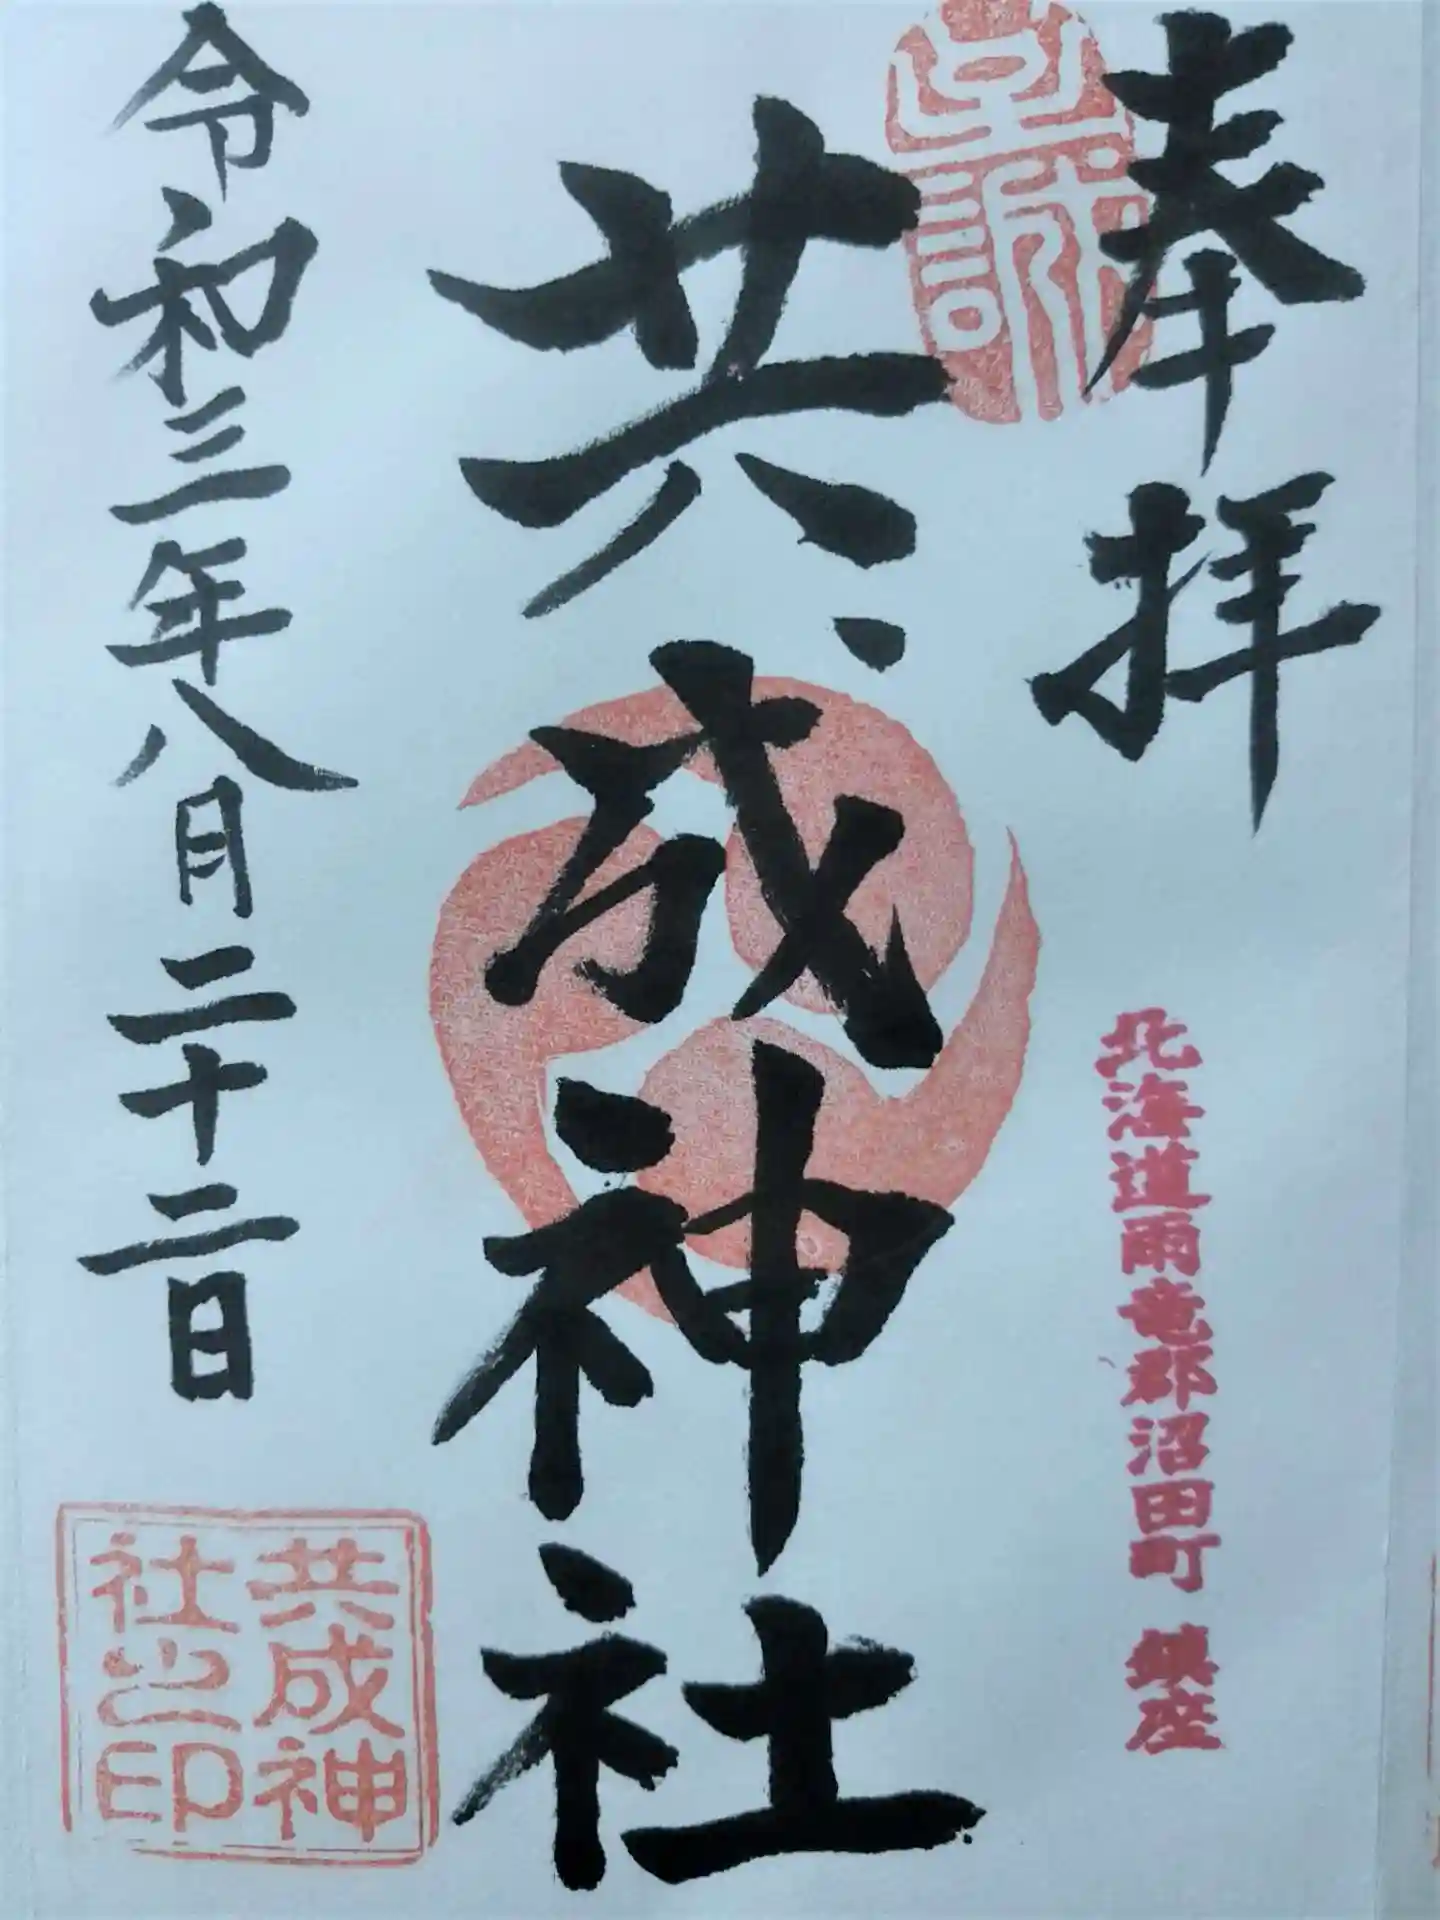 奉拝
至誠
北海道雨竜郡沼田町 鎮座
共成神社
令和三年八月二十二日
共成神
社之印